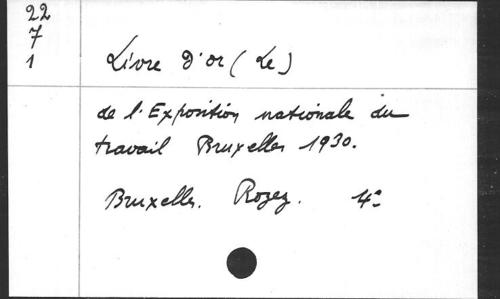 22
7
1
Livre d'or (Le)
de l'Exposition nationale du
travail Bruxelles 1930.
Bruxelles. Rozez. 4°